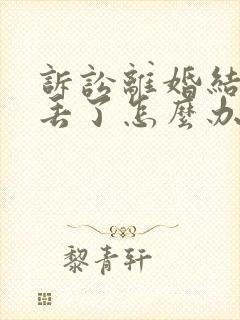 訴訟離婚結
丟了怎麼办
黎青轩